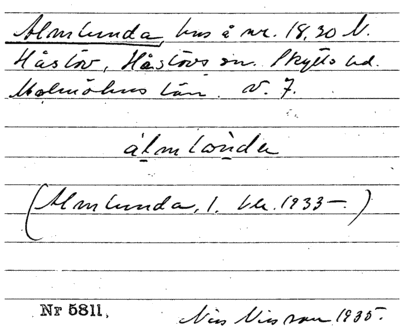 Almlunda, hus å nr. 18,20 V.
Håslöv, Håslövs sn. Skytts hd.
Malmöhus län. V. 7.
álmlònda
(Almlunda, 1. kv. 1933–)
Nr 5811.
Nils Nilsson 1935.